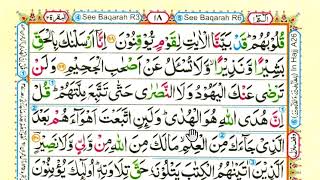 البقرة ٢ ④ See Baqarah R3 ١٨ ⑤ See Baqarah R6 الٓمّٓ ١
قُلُوْبُهُمْ ؕ قَدْ بَيَّنَّا الْاٰيٰتِ لِقَوْمٍ يُّوْقِنُوْنَ اِنَّاۤ اَرْسَلْنٰكَ بِالْحَقِّ
بَشِيْرًا وَّنَذِيْرًا ۙ وَّلَا تُسْـَٔلُ عَنْ اَصْحٰبِ الْجَحِيْمِ وَلَنْ
تَرْضٰى عَنْكَ الْيَهُوْدُ وَلَا النَّصٰرٰى حَتّٰى تَتَّبِعَ مِلَّتَهُمْ ؕ قُلْ
اِنَّ هُدَى اللّٰهِ هُوَ الْهُدٰى ؕ وَلَئِنِ اتَّبَعْتَ اَهْوَآءَهُمْ بَعْدَ
الَّذِيْ جَآءَكَ مِنَ الْعِلْمِ ۙ مَا لَكَ مِنَ اللّٰهِ مِنْ وَّلِيٍّ وَّلَا نَصِيْرٍ
اَلَّذِيْنَ اٰتَيْنٰهُمُ الْكِتٰبَ يَتْلُوْنَهٗ حَقَّ تِلَاوَتِهٖ ؕ اُولٰٓئِكَ يُؤْمِنُوْنَ